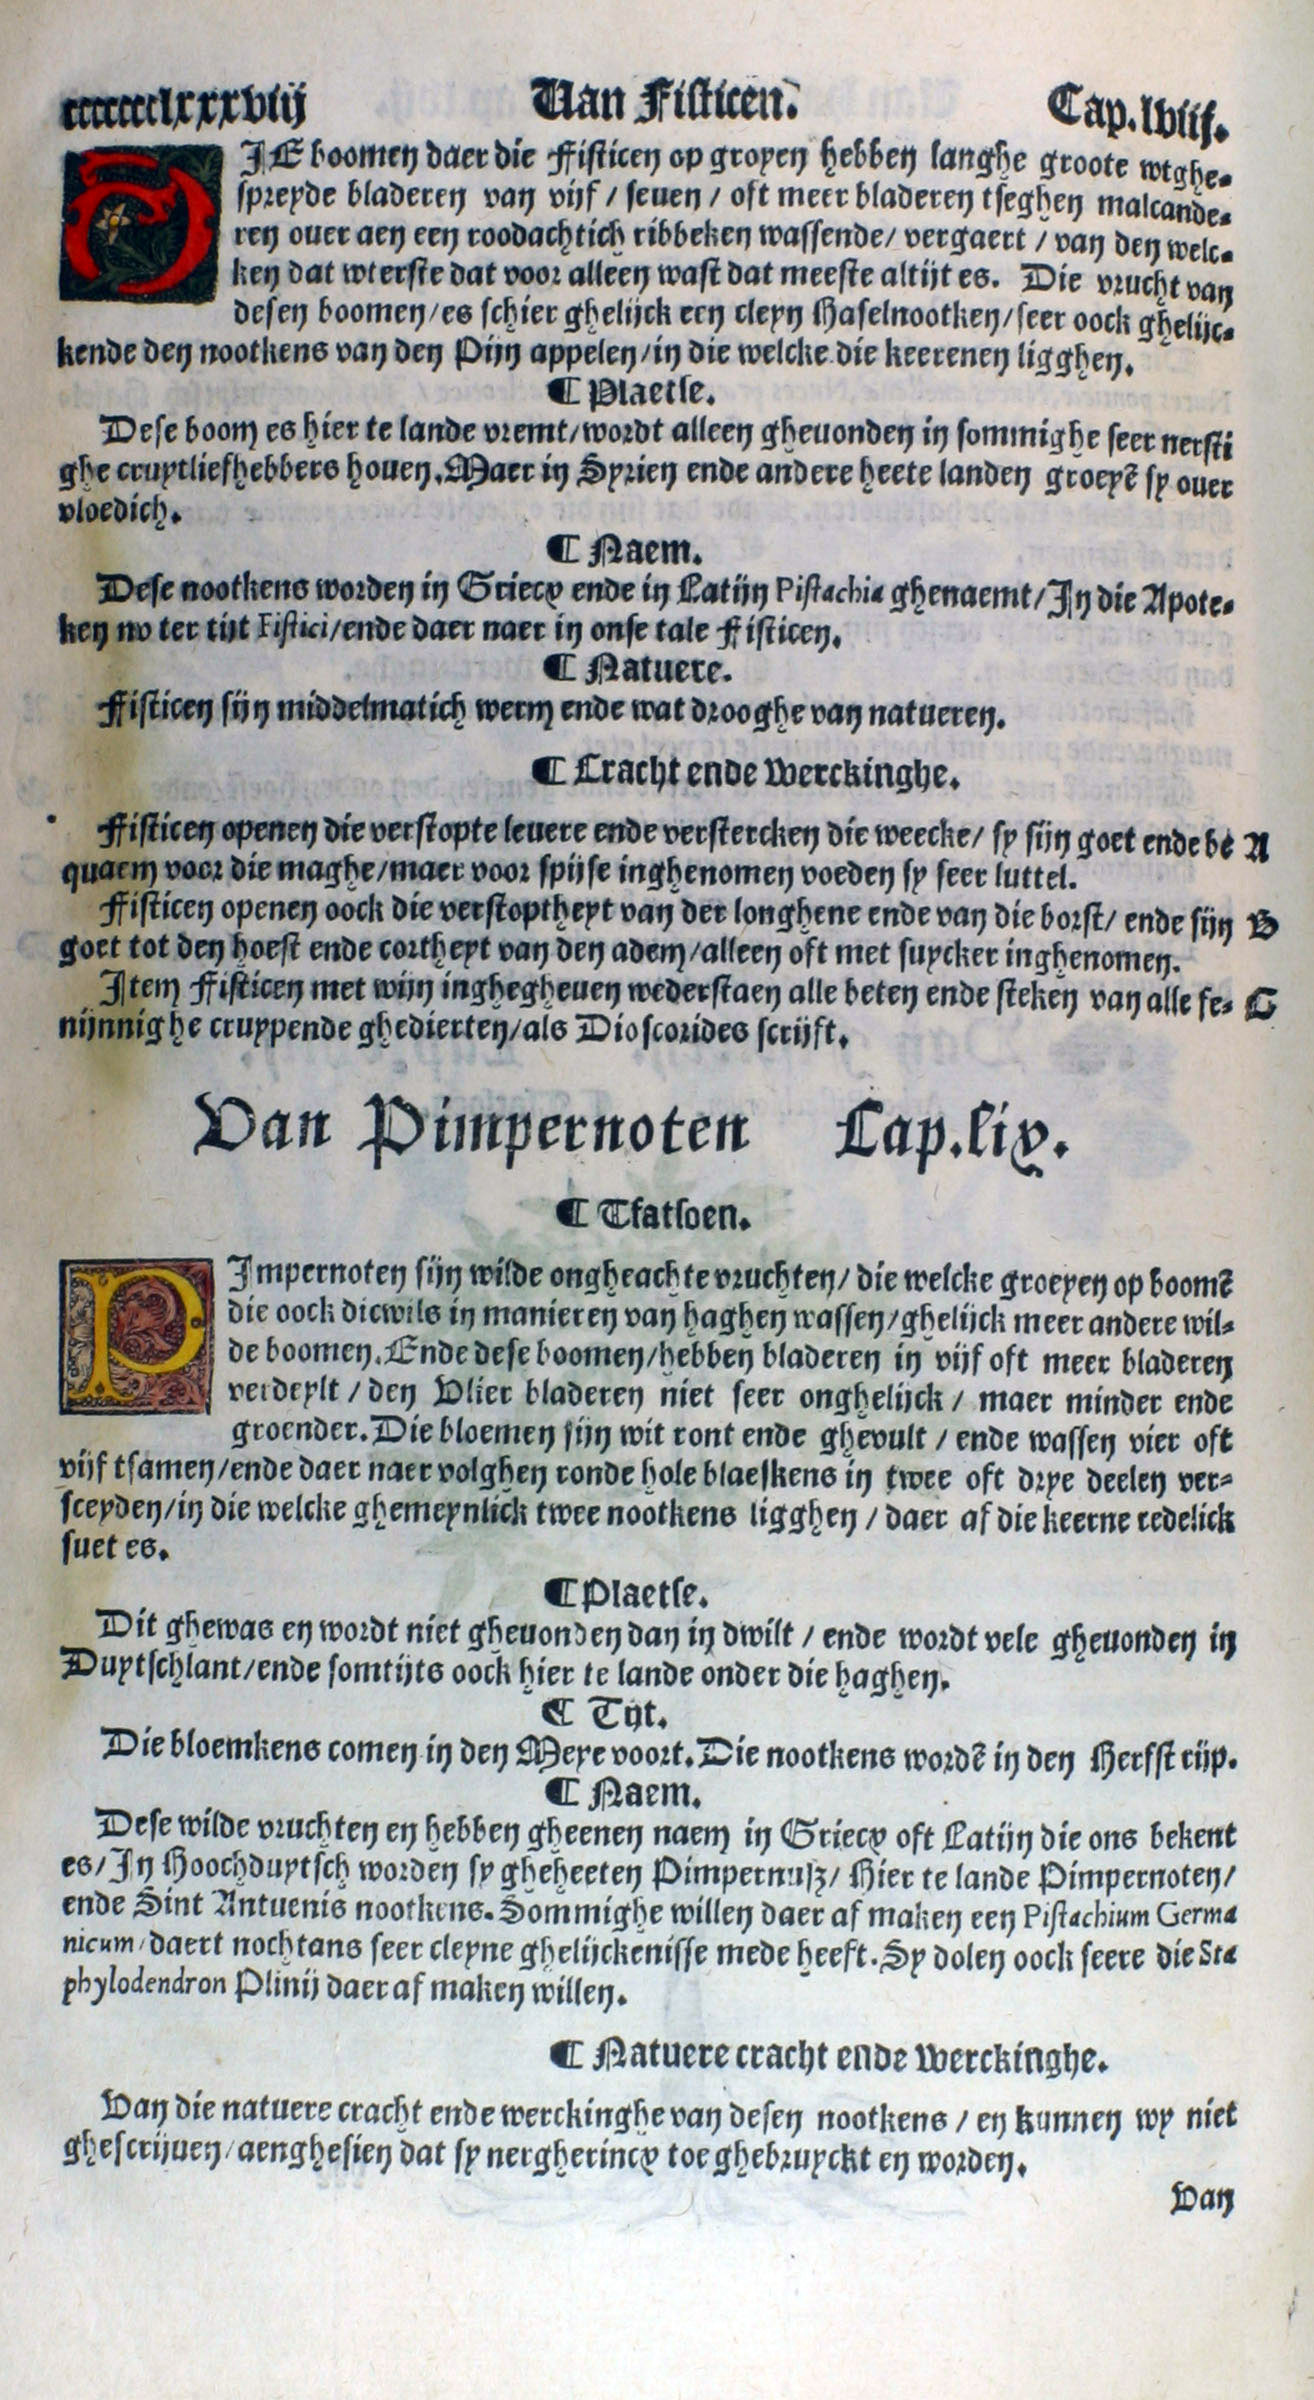 ccccccclxxxviij Van Fisticen. Cap.lviij.
DIE boomen daer die Fisticen op groyen hebben langhe groote wtghe-
spreyde bladeren van vijf / seuen / oft meer bladeren tseghen malcande-
ren ouer aen een roodachtich ribbeken wassende / vergaert / van den welc-
ken dat wterste dat voor alleen wast dat meeste altijt es. Die vrucht van
desen boomen / es schier ghelijck een cleyn Haselnootken / seer oock ghelijc-
kende den nootkens van den Pijn appelen / in die welcke die keerenen ligghen.
¶ Plaetse.
Dese boom es hier te lande vremt / wordt alleen gheuonden in sommighe seer nersti
ghe cruytliefhebbers houen. Maer in Syrien ende andere heete landen groeyē sy ouer
vloedich.
¶ Naem.
Dese nootkens worden in Griecx ende in Latijn Pistachia ghenaemt / In die Apote-
ken nv ter tijt Fistici / ende daer naer in onse tale Fisticen.
¶ Natuere.
Fisticen sijn middelmatich werm ende wat drooghe van natueren.
¶ Cracht ende Werckinghe.
Fisticen openen die verstopte leuere ende verstercken die weecke / sy sijn goet ende be A
quaem voor die maghe / maer voor spijse inghenomen voeden sy seer luttel.
Fisticen openen oock die verstoptheyt van der longhene ende van die borst / ende sijn B
goet tot den hoest ende cortheyt van den adem / alleen oft met suycker inghenomen.
Item Fisticen met wijn inghegheuen wederstaen alle beten ende steken van alle fe- C
nijnnighe cruypende ghedierten / als Dioscorides scrijft.
Van Pimpernoten Cap.lix.
¶ Tfatsoen.
PImpernoten sijn wilde ongheachte vruchten / die welcke groeyen op boomē
die oock dicwils in manieren van haghen wassen / ghelijck meer andere wil-
de boomen. Ende dese boomen / hebben bladeren in vijf oft meer bladeren
verdeylt / den Vlier bladeren niet seer onghelijck / maer minder ende
groender. Die bloemen sijn wit ront ende ghevult / ende wassen vier oft
vijf tsamen / ende daer naer volghen ronde hole blaeskens in twee oft drye deelen ver-
sceyden / in die welcke ghemeynlick twee nootkens ligghen / daer af die keerne redelick
suet es.
¶ Plaetse.
Dit ghewas en wordt niet gheuonden dan in dwilt / ende wordt vele gheuonden in
Duytschlant / ende somtijts oock hier te lande onder die haghen.
¶ Tijt.
Die bloemkens comen in den Meye voort. Die nootkens wordē in den Herfst rijp.
¶ Naem.
Dese wilde vruchten en hebben gheenen naem in Griecx oft Latijn die ons bekent
es / In Hoochduytsch worden sy gheheeten Pimpernusz / Hier te lande Pimpernoten /
ende Sint Antuenis nootkens. Sommighe willen daer af maken een Pistachium Germa
nicum / daert nochtans seer cleyne ghelijckenisse mede heeft. Sy dolen oock seere die Sta
phylodendron Plinij daer af maken willen.
¶ Natuere cracht ende Werckinghe.
Van die natuere cracht ende werckinghe van desen nootkens / en kunnen wy niet
ghescrijuen / aenghesien dat sy nergherincx toe ghebruyckt en worden.
Van